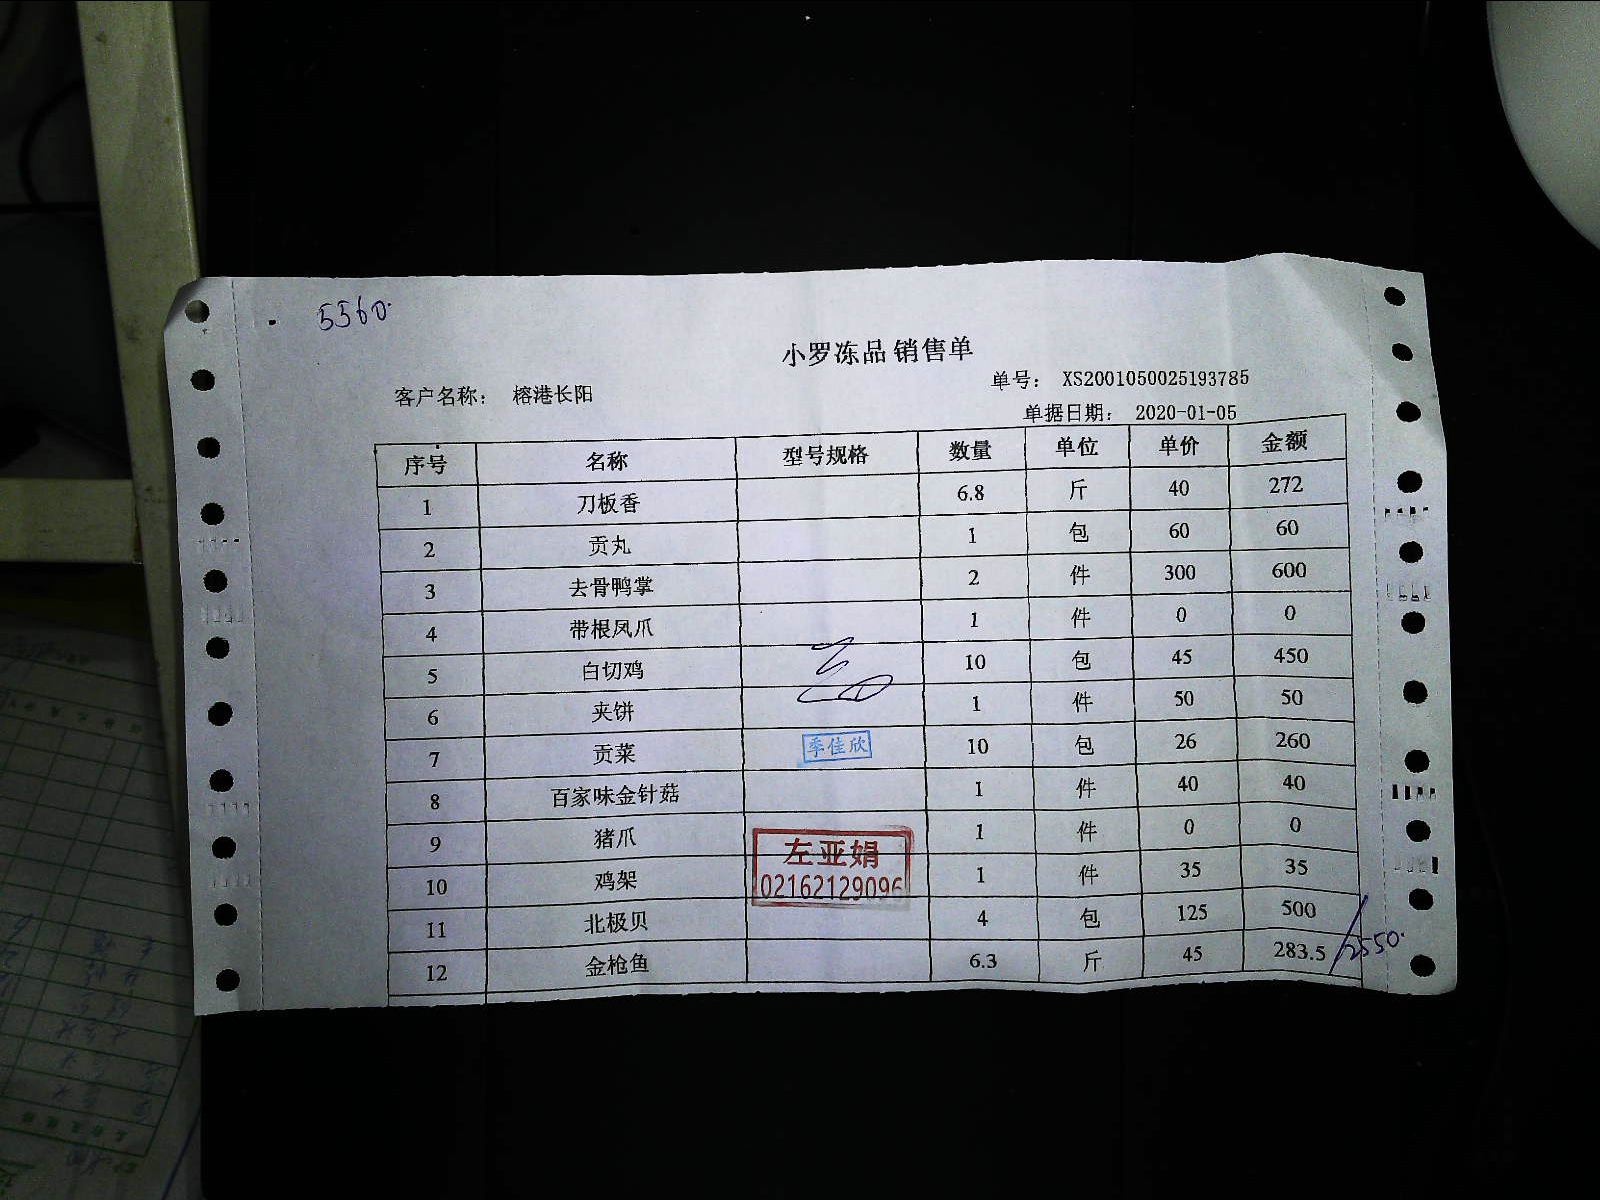 5560.
小罗冻品 销售单
客户名称： 榕港长阳
单号： XS2001050025193785
单据日期： 2020-01-05
序号 名称 型号规格 数量 单位 单价 金额
1 刀板香 6.8 斤 40 272
2 贡丸 1 包 60 60
3 去骨鸭掌 2 件 300 600
4 带根凤爪 1 件 0 0
5 白切鸡 10 包 45 450
6 夹饼 1 件 50 50
7 贡菜 季佳欣 10 包 26 260
8 百家味金针菇 1 件 40 40
9 猪爪 1 件 0 0
左亚娟
02162129096
10 鸡架 1 件 35 35
11 北极贝 4 包 125 500
12 金枪鱼 6.3 斤 45 283.5
2550.